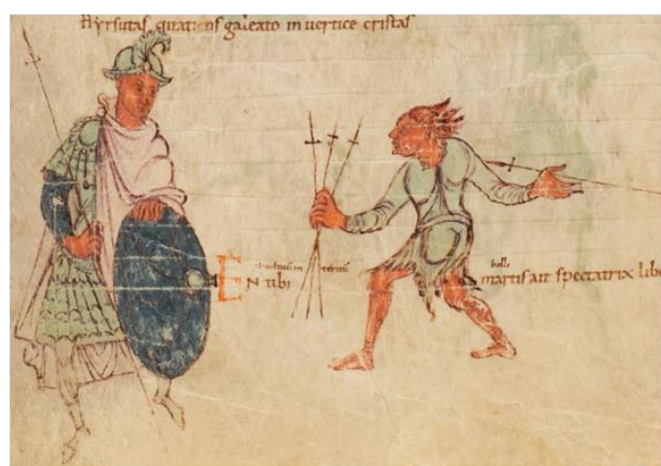 hyrsutas quatiens galeato in vertice cristas
EN ubi martis ait spectatrix libi
belli